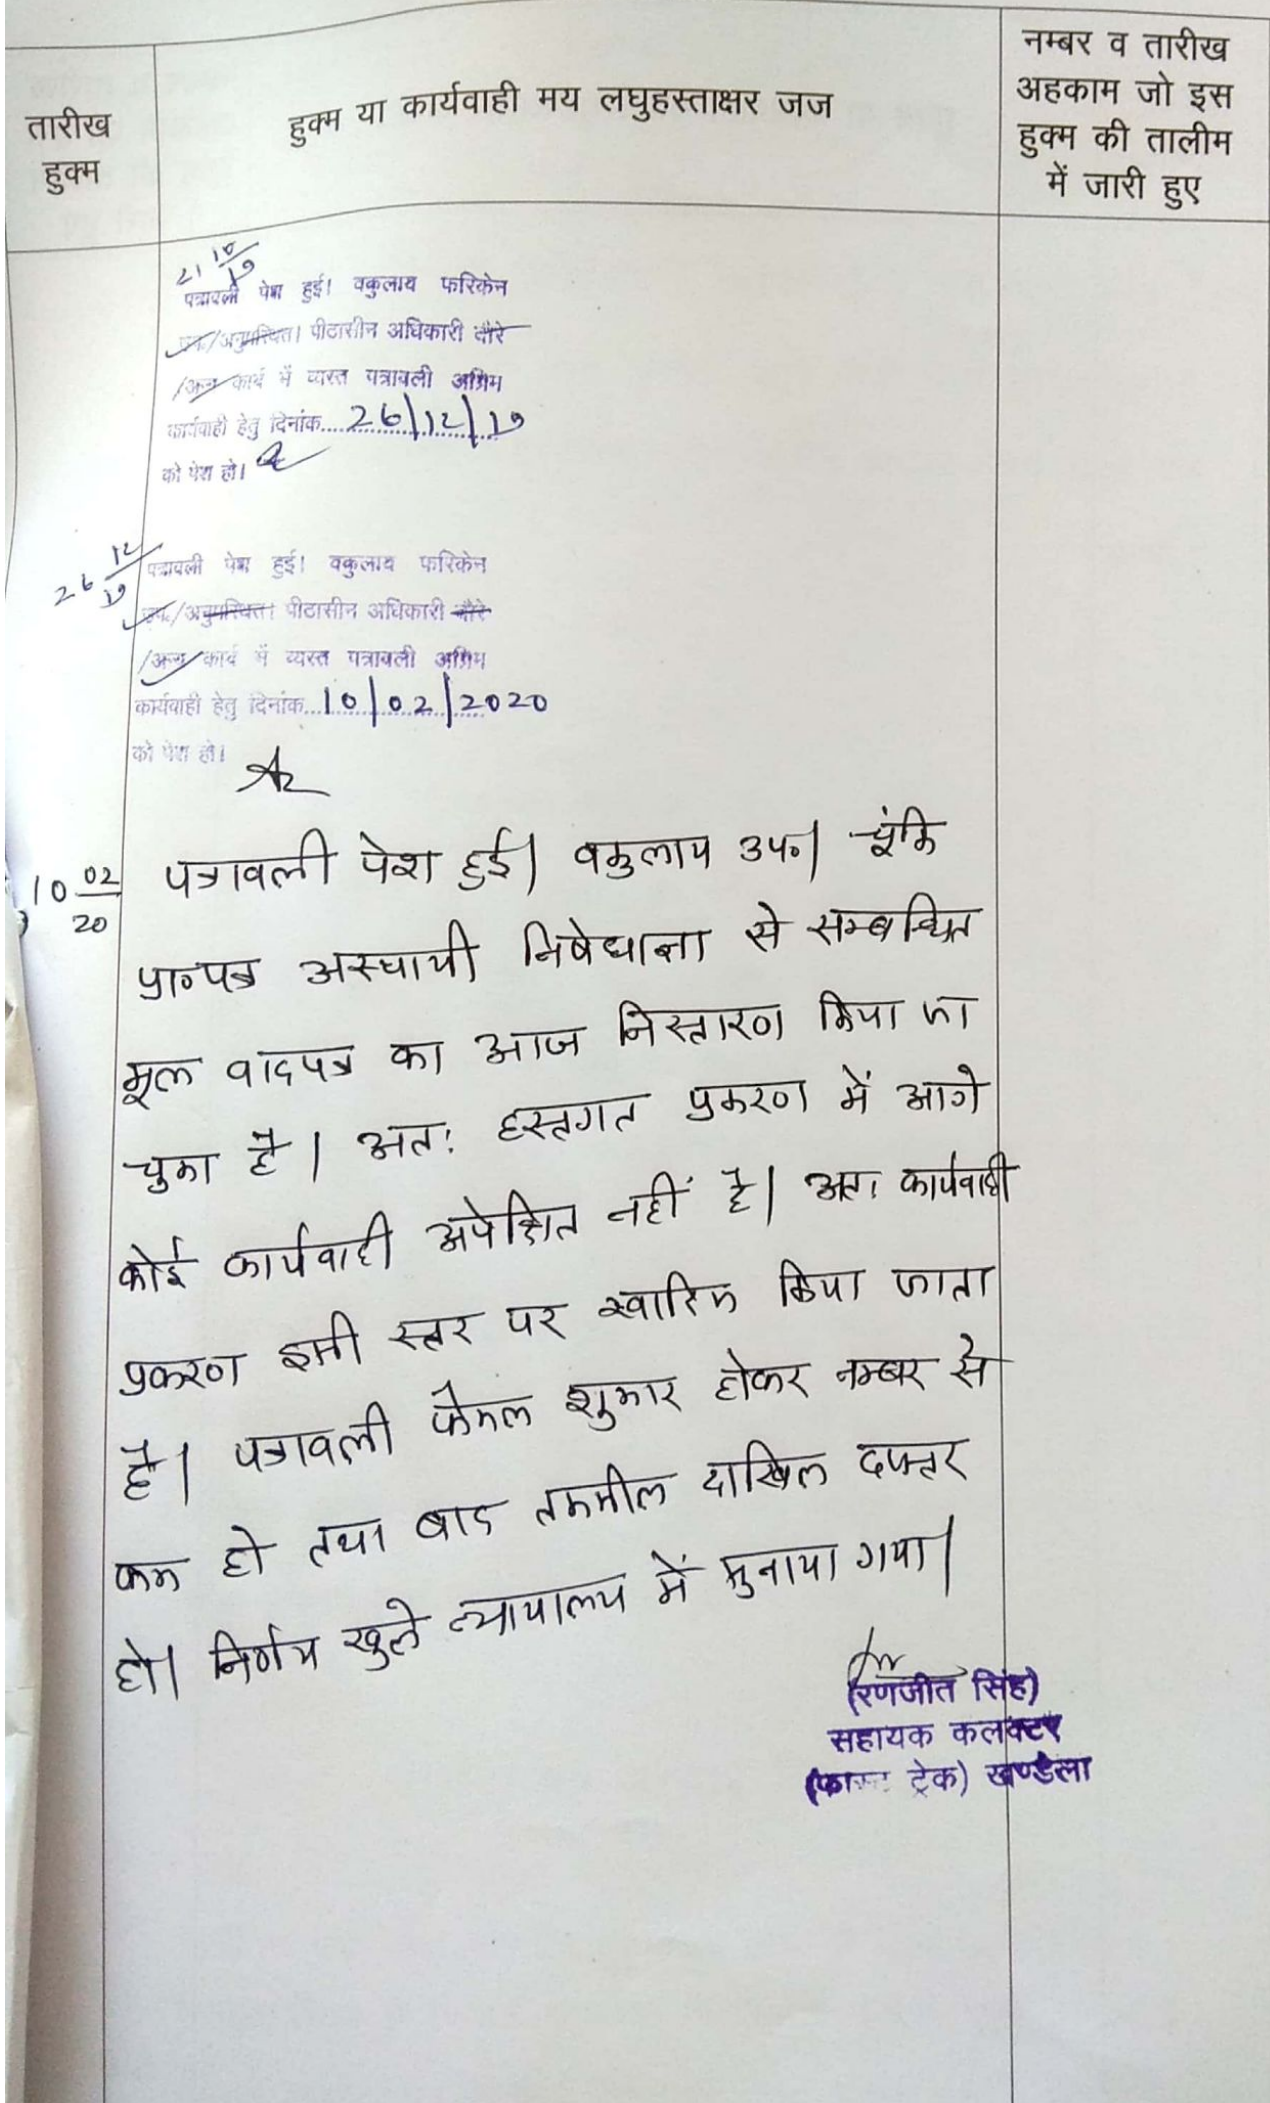 तारीख
हुक्म
हुक्म या कार्यवाही मय लघुहस्ताक्षर जज
नम्बर व तारीख
अहकाम जो इस
हुक्म की तालीम
में जारी हुए
21 10/19
पत्रावली पेश हुई। वकुलाय फरिकेन
उप./अनुपस्थित। पीठासीन अधिकारी दौरे
/अन्य कार्य में व्यस्त पत्रावली अग्रिम
कार्यवाही हेतु दिनांक...26/12/19
को पेश हो।
26 12/19
पत्रावली पेश हुई। वकुलाय फरिकेन
उप./अनुपस्थित। पीठासीन अधिकारी दौरे
/अन्य कार्य में व्यस्त पत्रावली अग्रिम
कार्यवाही हेतु दिनांक...10/02/2020
को पेश हो।
10 02/20
पत्रावली पेश हुई। वकुलाय उप०। चूंकि
प्रा०पत्र अस्थायी निषेधाज्ञा से सम्बन्धित
मूल वादपत्र का आज निस्तारण किया जा
चुका है। अतः हस्तगत प्रकरण में आगे
कोई कार्यवाही अपेक्षित नहीं है। अतः कार्यवाही
प्रकरण इसी स्तर पर खारिज किया जाता
है। पत्रावली फैसल शुमार होकर नम्बर से
कम हो तथा बाद तकमील दाखिल दफ्तर
हो। निर्णय खुले न्यायालय में सुनाया गया।
(रणजीत सिंह)
सहायक कलक्टर
(फास्ट ट्रेक) खण्डेला